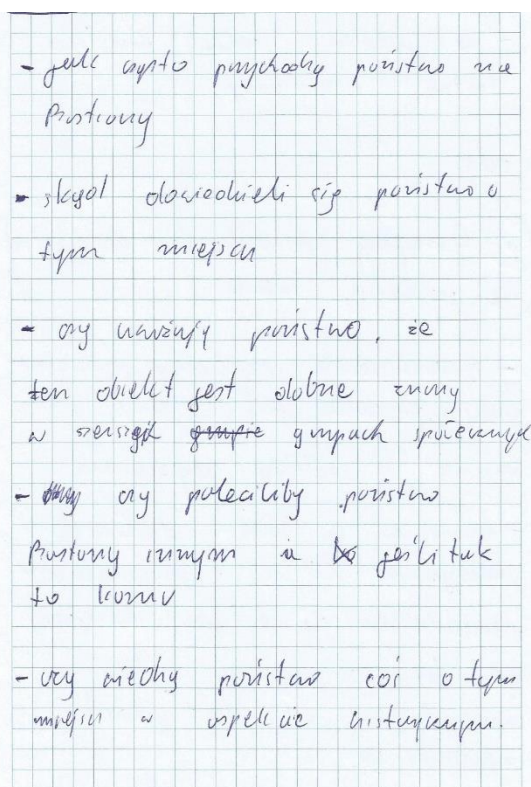 - jak często przychodzą państwo na
Bastiony
- skąd dowiedzieli się państwo o
tym miejscu
- czy uważają państwo, że
ten obiekt jest dobrze znany
w szerszych grupie grupach społecznych
- czy poleciliby państwo
Bastiony innym a jeśli tak
to komu
- czy wiedzą państwo coś o tym
miejscu w aspekcie historycznym.